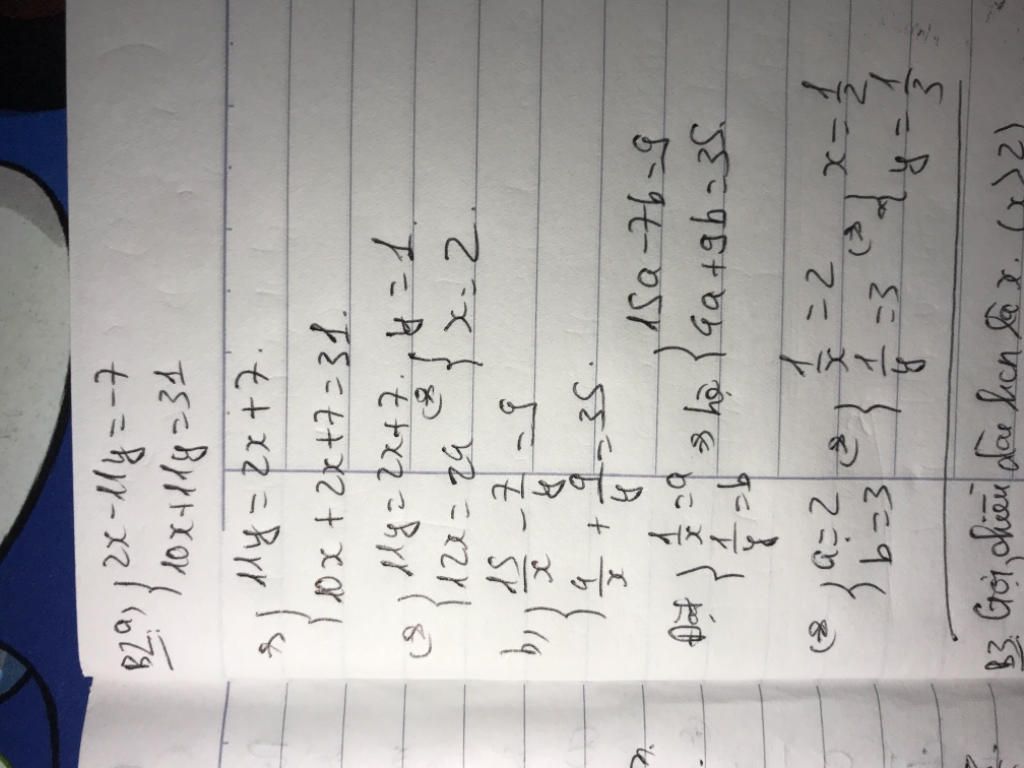 B2 a, { 2x - 11y = -7
10x + 11y = 31
⇒ { 11y = 2x + 7.
10x + 2x + 7 = 31.
⇔ { 11y = 2x + 7. ⇔ { y = 1
12x = 24 x = 2
b, { 15/x - 7/y = 9
4/x + 9/y = 35.
Đặt { 1/x = a ⇒ hệ { 15a - 7b = 9
1/y = b 4a + 9b = 35.
⇔ { a = 2 ⇔ { 1/x = 2 ⇔ { x = 1/2
b = 3 1/y = 3 y = 1/3
B3 Gọi chiều dài hcn là x. (x > 2)